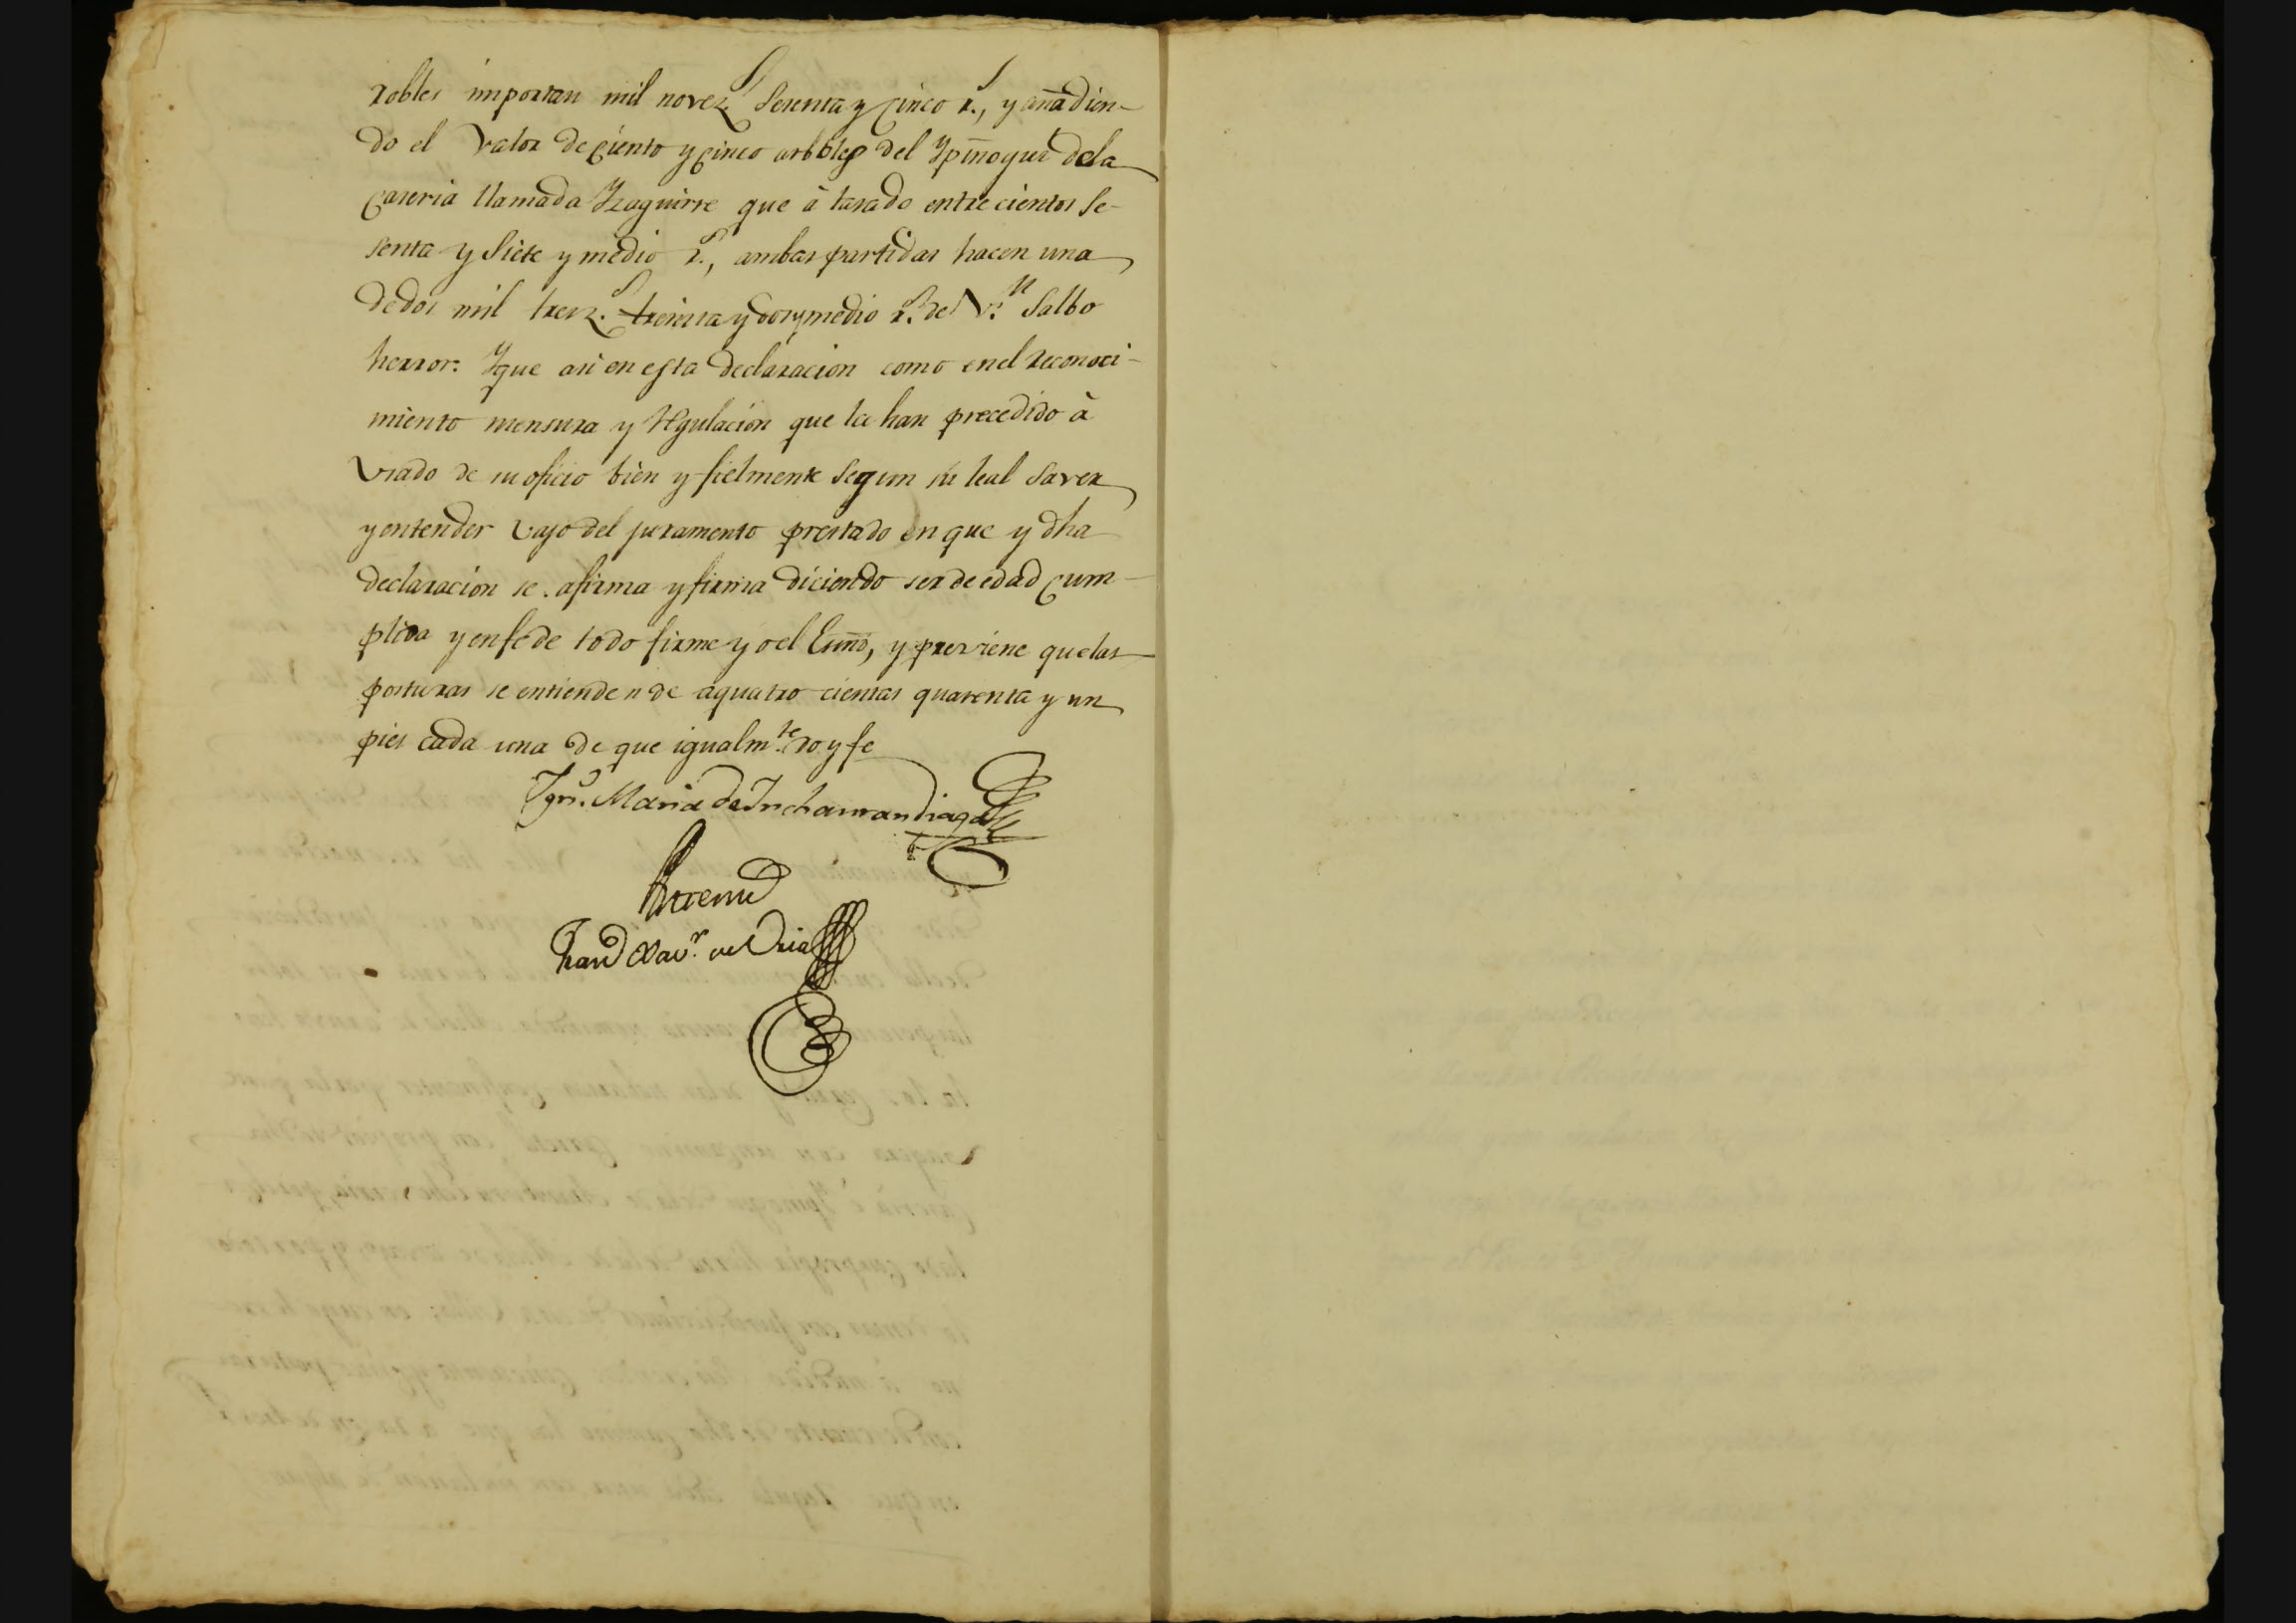 robles importan mil novez.s sesenta y cinco r.s, y añadien-
do el valor de ciento y cinco arboles del Ypinogui dela
caseria llamada Yzaguirre que à tasado entrecientos se-
senta y siete y medio r.s, ambas partidas hacen una
dedos mil trez.s treinta y dos y medio r.s de V.n Salbo
herror: Yque asi en esta declaracion como enel reconoci-
miento mensura y regulacion que la han precedido à
usado de su oficio bien y fielmente segun su leal saver
y entender vajo del juramento prestado en que y dha
declaracion se afirma y firma diciendo ser de edad cum-
plida y enfé de todo firme yo el Essno, y previene quelas
posturas se entienden de aquatro cientas quarenta y un
pies cada una de que igualm.te doy fe
Ign.o Maria de Inchaurrandiaga
Antemi
Fran.co Xav.r de Oria